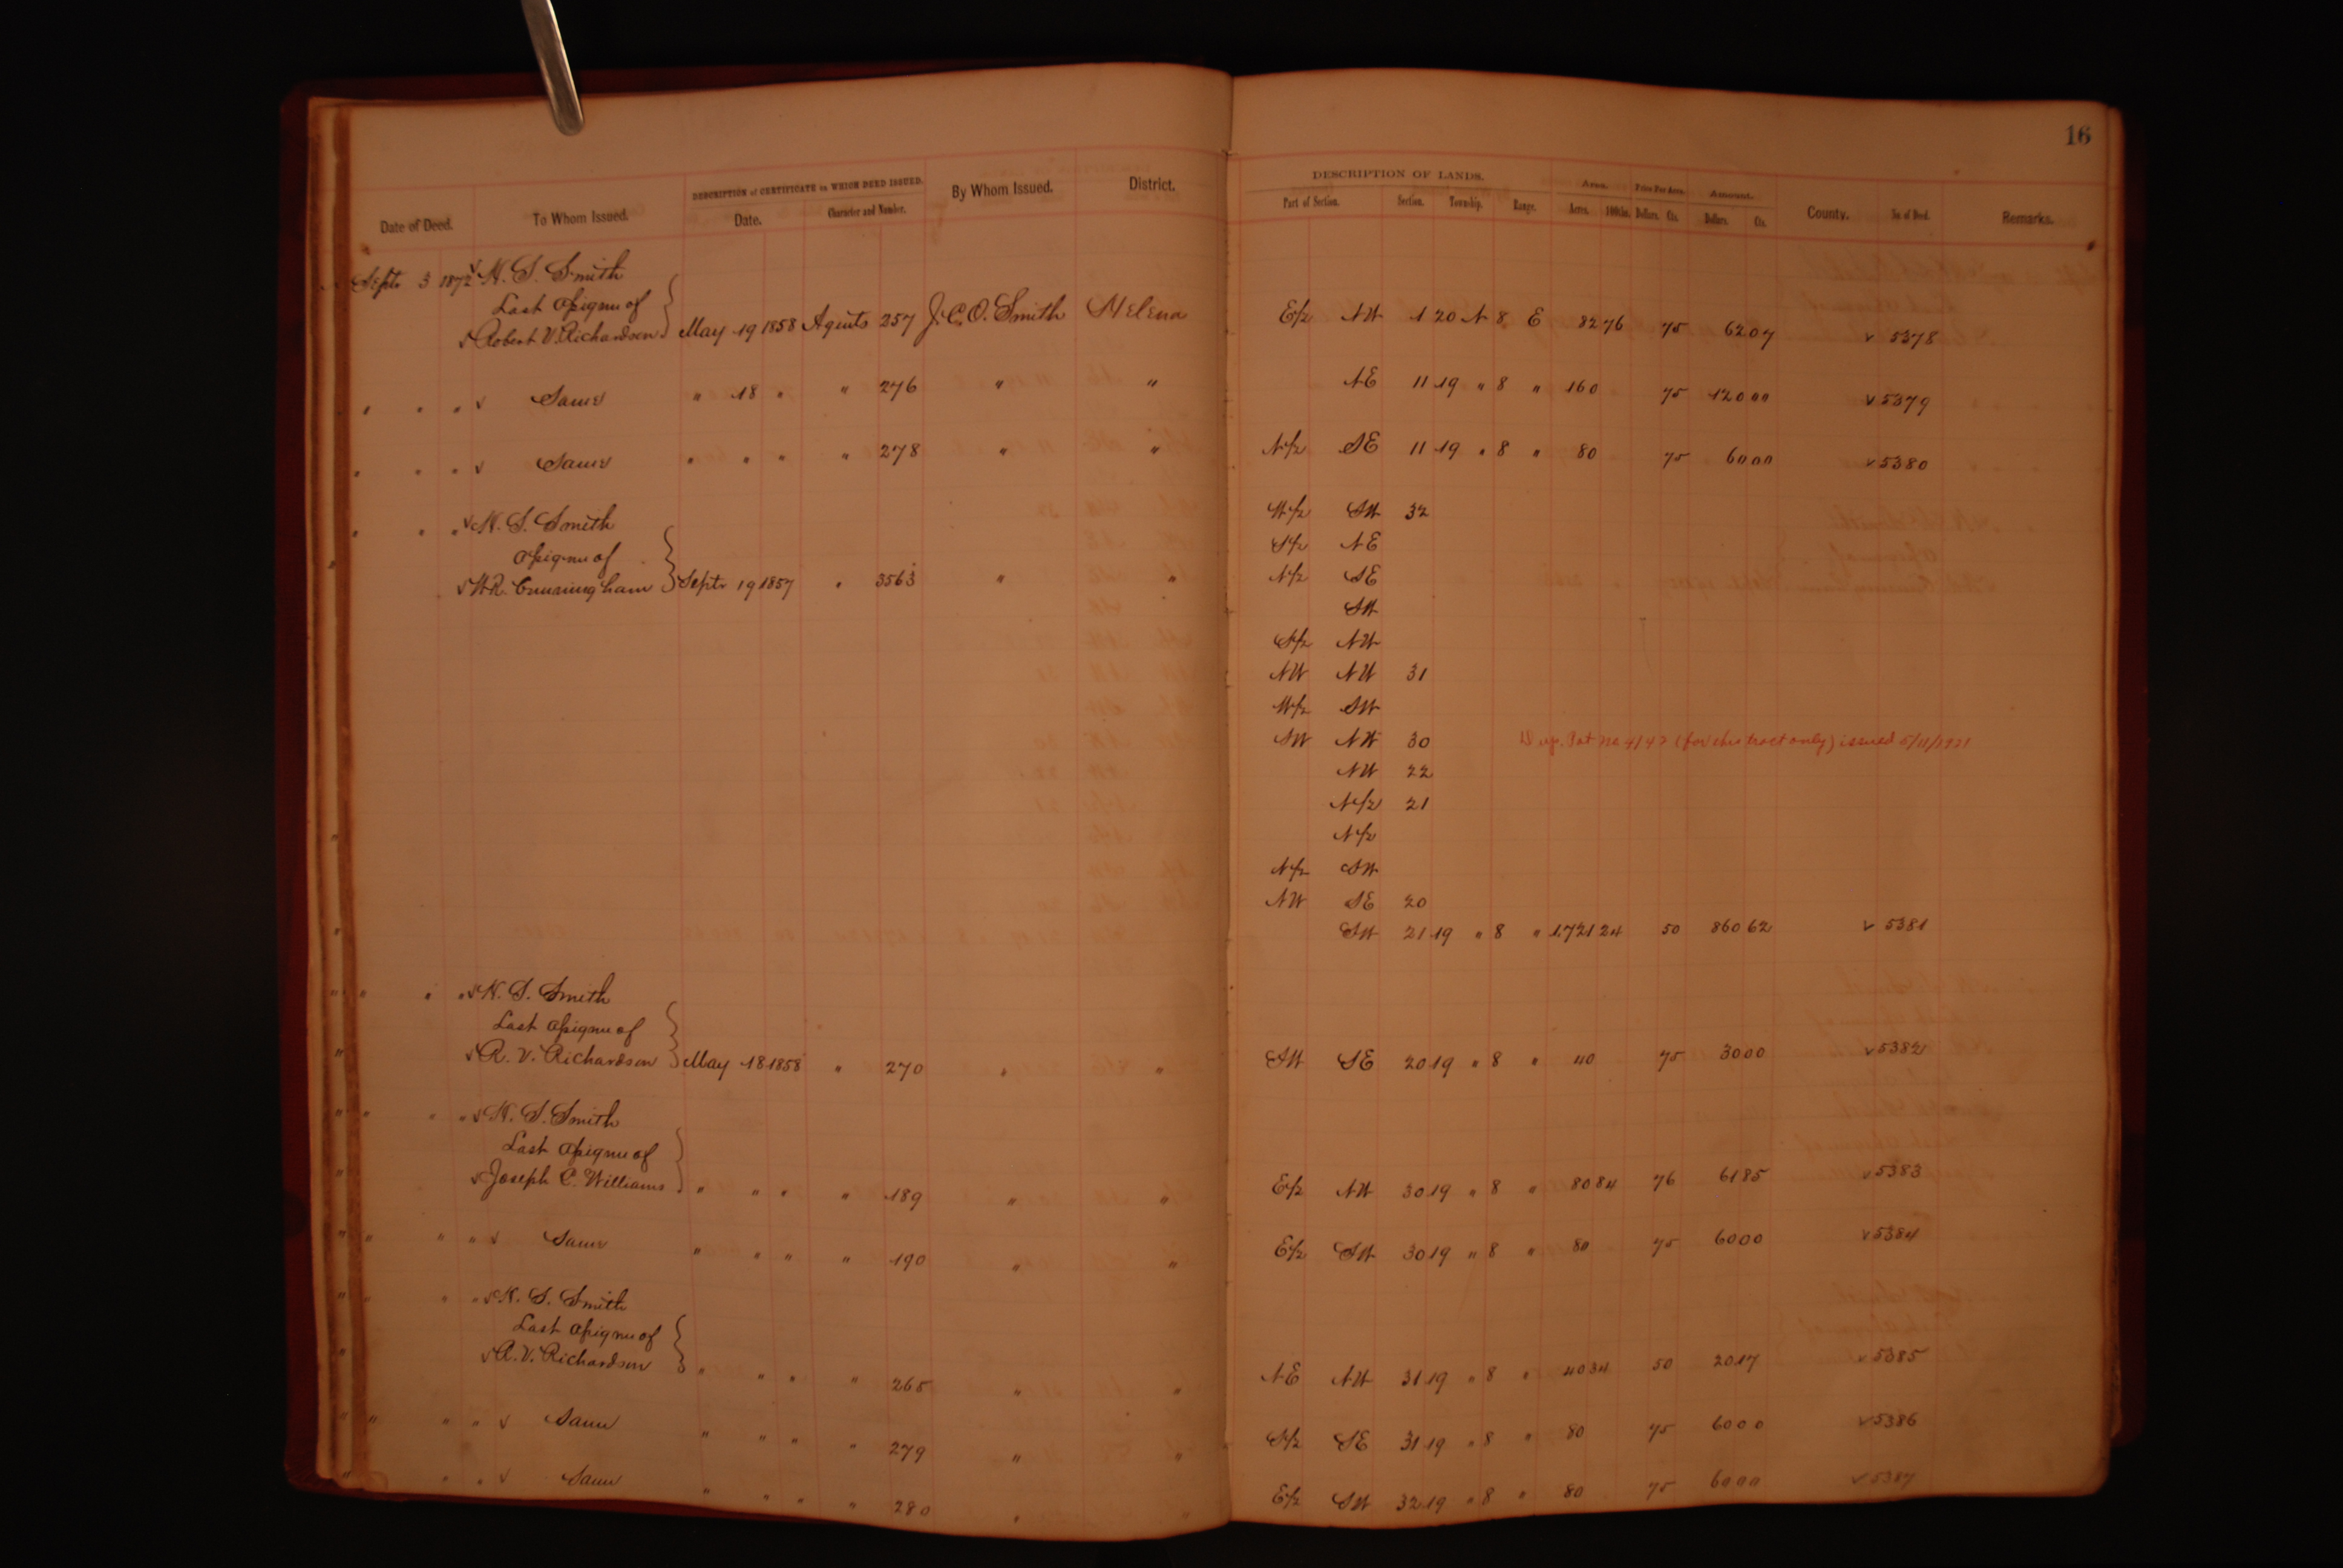 16
DESCRIPTION of CERTIFICATE on WHICH DEED ISSUED.
By Whom Issued. District.
DESCRIPTION OF LANDS. Area. Price Per Acre. Amount.
Date of Deed. To Whom Issued. Date. Character and Number.
Part of Section. Section. Township. Range. Acres. 100ths. Dollars. Cts. Dollars. Cts. County. No. of Deed. Remarks.
Septr 3 1872 √ H. S. Smith
Last Assignee of
√ Robert V. Richardson } May 19 1858 Agents 257 J. C. O. Smith Helena E/2 NW 1 20 N 8 E 82 76 75 62 07 √ 5378
" " " √ Same " 18 " " 276 " " NE 11 19 " 8 " 160 75 120 00 √ 5379
" " " √ Same " " " " 278 " " N/2 SE 11 19 " 8 " 80 75 60 00 √ 5380
" " " √ H. S. Smith W/2 SW 32
Assignee of S/2 NE
√ W.R. Cunningham } Septr 19 1857 " 3563 " " N/2 SE
SW
S/2 NW
NW NW 31
W/2 SW
SW NW 30 Dup. Pat no 4147 (for this tract only) issued 5/11/1921
NW 22
N/2 21
N/2
N/2 SW
NW SE 20
SW 21 19 " 8 " 1721 24 50 860 62 √ 5381
" " " √ H. S. Smith
Last Assignee of
√ R. V. Richardson } May 18 1858 " 270 " " SW SE 20 19 " 8 " 40 75 30 00 √ 5382
" " " √ H. S. Smith
Last Assignee of
√ Joseph C. Williams } " " " " 189 " " E/2 NW 30 19 " 8 " 80 84 76 61 85 √ 5383
" " " √ Same " " " " 190 " " E/2 SW 30 19 " 8 " 80 75 60 00 √ 5384
" " " √ H. S. Smith
Last Assignee of
√ R. V. Richardson } " " " " 265 " " NE NW 31 19 " 8 " 40 34 50 20 17 √ 5385
" " " √ Same " " " " 279 " " S/2 SE 31 19 " 8 " 80 75 60 00 √ 5386
" " " √ Same " " " " 280 " " E/2 SW 32 19 " 8 " 80 75 60 00 √ 5387